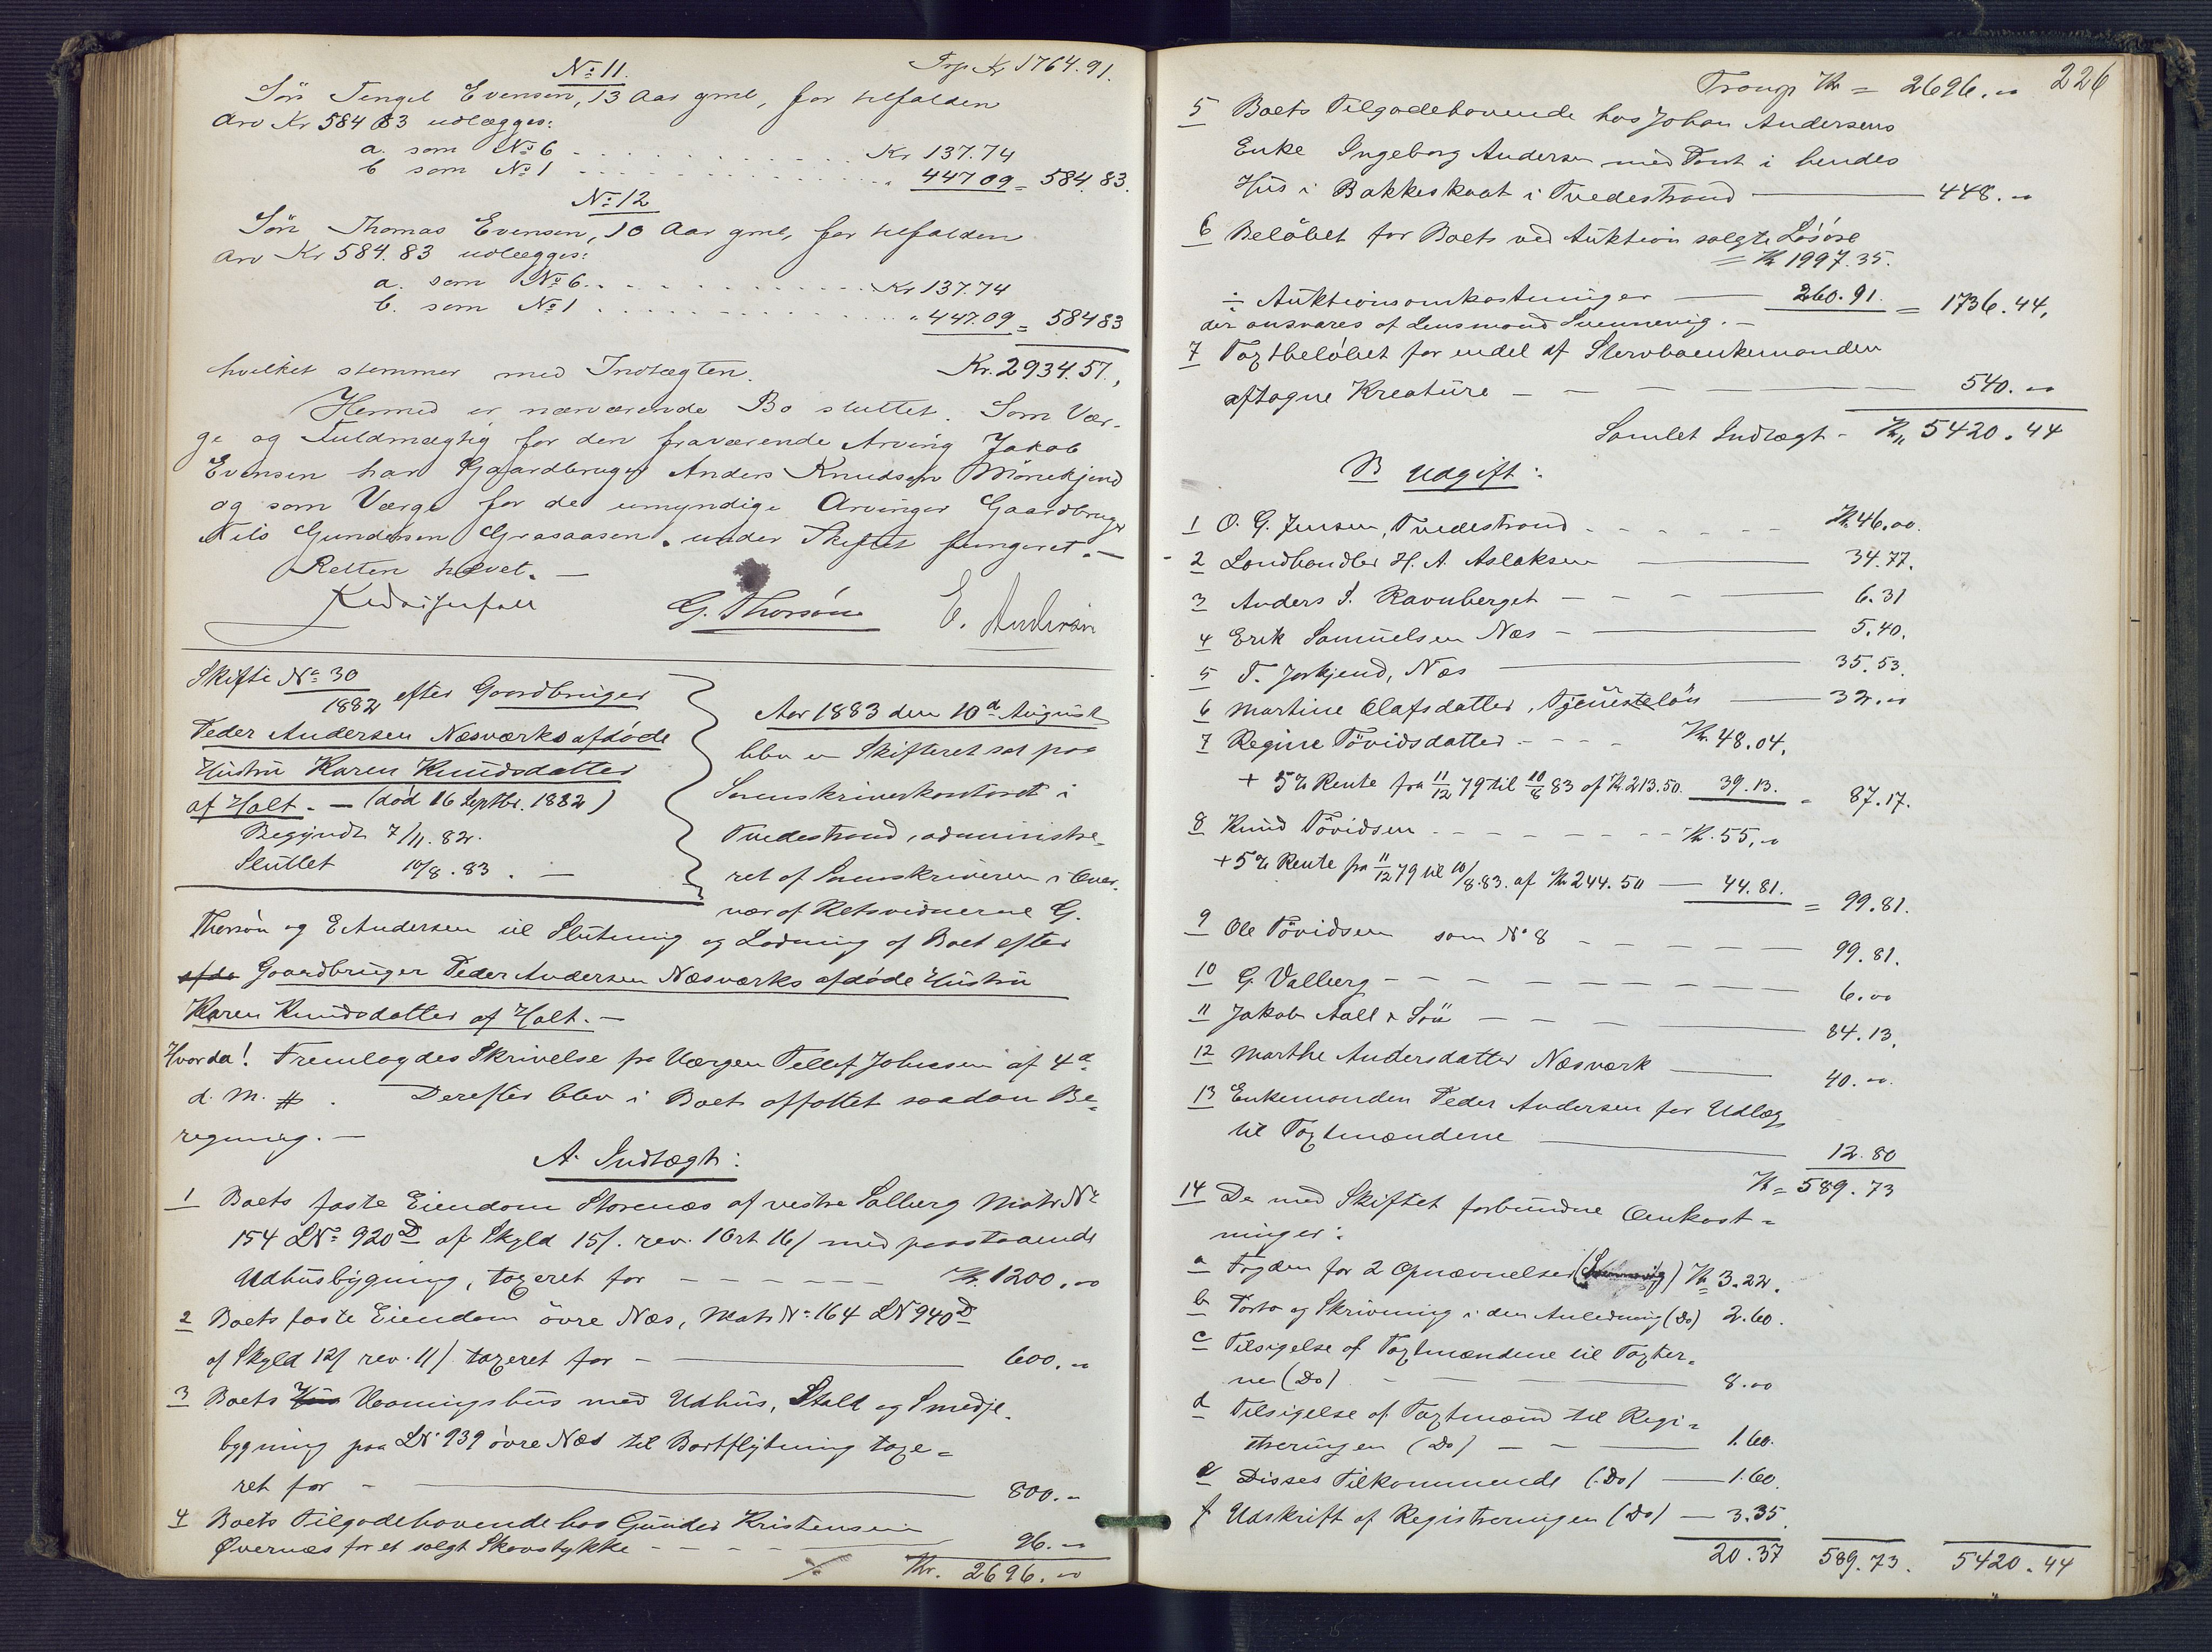 Trp. Kr 1764.91.
No 11.
Sön Tengel Evensen, 13 Aar gml, for tilfalden
Arv Kr 584 83 udlægges:
a. som No 6 - - - Kr 137.74
b som No 1 - - - " 447 09 = 584 83.
No 12
Sön Thomas Evensen, 10 Aar gml, for tilfalden
Arv Kr 584.83 udlægges:
a. som No 6. - - - Kr 137.74
b. som No 1 - - - " 447.09 = 584 83
hvilket stemmer med Indtægten. Kr. 2934.57.,
Hermed er nærværende Bo sluttet. Som Vær-
ge og Fuldmægtig for den fraværende Arving Jakob
Evensen har Gaardbruger Anders Knudsen
og som Værge for de umyndige Arvinger Gaardbruger
Nils Gundersen Grasaasen. under Skiftet fungeret. —
Retten hævet. —
G. Thorsön E. Andersen
Skifte No 30
1882 efter Gaardbruger
Peder Andersen Næsværks afdöde
Hustru Karen Knudsdatter
af Holt. — (död 16 Septbr. 1882)
Begyndt 7/11. 82.
Sluttet 10/8. 83. —
Aar 1883 den 10d August
blev en Skifteret sat paa
Sorenskriverkontoret i
Tvedestrand, administre-
ret af Sorenskriveren i Over-
vær af Retsvidnerne G.
Thorsön og E Andersen til Slutning og Lodning af Boet efter
afdö Gaardbruger Peder Andersen Næsværks afdöde Hustru
Karen Knudsdatter af Holt. —
Hvorda! Fremlagdes Skrivelse fra Værgen Tellef Johnsen af 4d
d. M. #. Derefter blev i Boet affattet saadan Be-
regning. —
A. Indtægt:
1 Boets faste Eiendom Storenæs af vestre Solberg Matr No
154 LNo 920D af Skyld 15/. rev. 1 Ort 16/ med paastaaende
Udhusbygning, taxeret for - - - Kr. 1200.00
2 Boets faste Eiendom övre Næs, Matr No 164 LN 940D
af Skyld 12/ rev. 11/. taxeret for - — 600.00
3 Boets Hus Vaaningshus med Udhus, Stald og Smedje-
bygning paa LN. 939 övre Næs til Bortflytning taxe-
ret for - — 800.-
4 Boets Tilgodehavende hos Gunder Kristensen
Øvernæs for et solgt Skovstykke - - - 96.00
Kr. 2696.00
226
Transp Kr = 2696.00
5 Boets Tilgodehavende hos Johan Andersens
Enke Ingeborg Andersen med Pant i hendes
Hus i Bakkeskaat i Tvedestrand — 448.00
6 Belöbet for Boets ved Auktion solgte Lösöre
= Kr 1997.35.
÷ Auktionsomkostninger — 260.91. = 1736.44,
der ansvares af Lensmand Svennevig. —
7 Taxtbelöbet for endel af Stervboenkemanden
aftagne Kreature - — 540.00
Samlet Indtægt - Kr,, 5420.44
B Udgift:
1 O. G. Jensen, Tvedestrand - - - Kr. 46.00.
2 Landhandler H. A. Aslaksen — 34.77.
3 Anders S. Ravnberget - - — 6.31
4 Erik Samuelsen Næs - — 5.40.
5 T. Jorkjend, Næs — 35.53.
6 Martine Olafsdatter, Tjenesteløn — 32.00
7 Regine Tövidsdatter - - - Kr. 48.04.
+ 5% Rente fra 11/12 79 til 10/8 83 af Kr. 213.50. 39.13. = 87.17.
8 Knud Tövidsen - - - Kr. 55.00
+ 5% Rente fra 11/12 79 til 10/8.83. af Kr 244.50 — 44.81. = 99.81.
9 Ole Tövidsen som No 8 - - - 99.81.
10 G. Valberg - - - 6.00
11 Jakob Aall & Sön - - — 84.13.
12 Marthe Andersdatter Næsværk — 40.00.
13 Enkemanden Peder Andersen for Udlæg
til Taxtmændene — 12.80
Kr = 589.73
14 De med Skiftet forbundne Omkost-
ninger:
a Fogden for 2 Opnævnelser (Svennevig) Kr 3.22.
b Porto og Skrivning i den Anledning (Do) 2.60.
c Tilsigelse af Taxtmændene til Taxter-
ne (Do) - — 8.00
d Tilsigelse af Taxtmænd til Regi-
streringen (Do) - — 1.60.
e Disses Tilkommende (Do) — 1.60.
f Udskrift af Registreringen (Do) — 3.35.
20.37 589.73. 5420.44